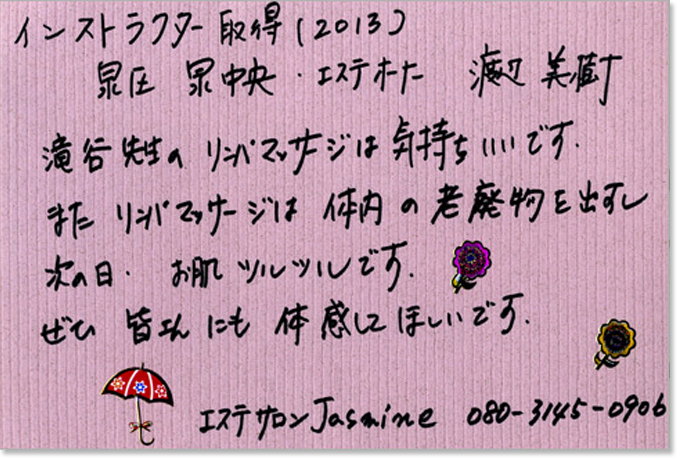 インストラクター取得(2013)
泉区 泉中央・エステオーナー 渡辺 美樹
滝谷先生の リンパマッサージは気持ちいいです.
また リンパマッサージは 体内の老廃物を出すし
次の日. お肌ツルツルです.
ぜひ 皆さんにも体感してほしいです.
エステサロンJasmine 080-3145-0906